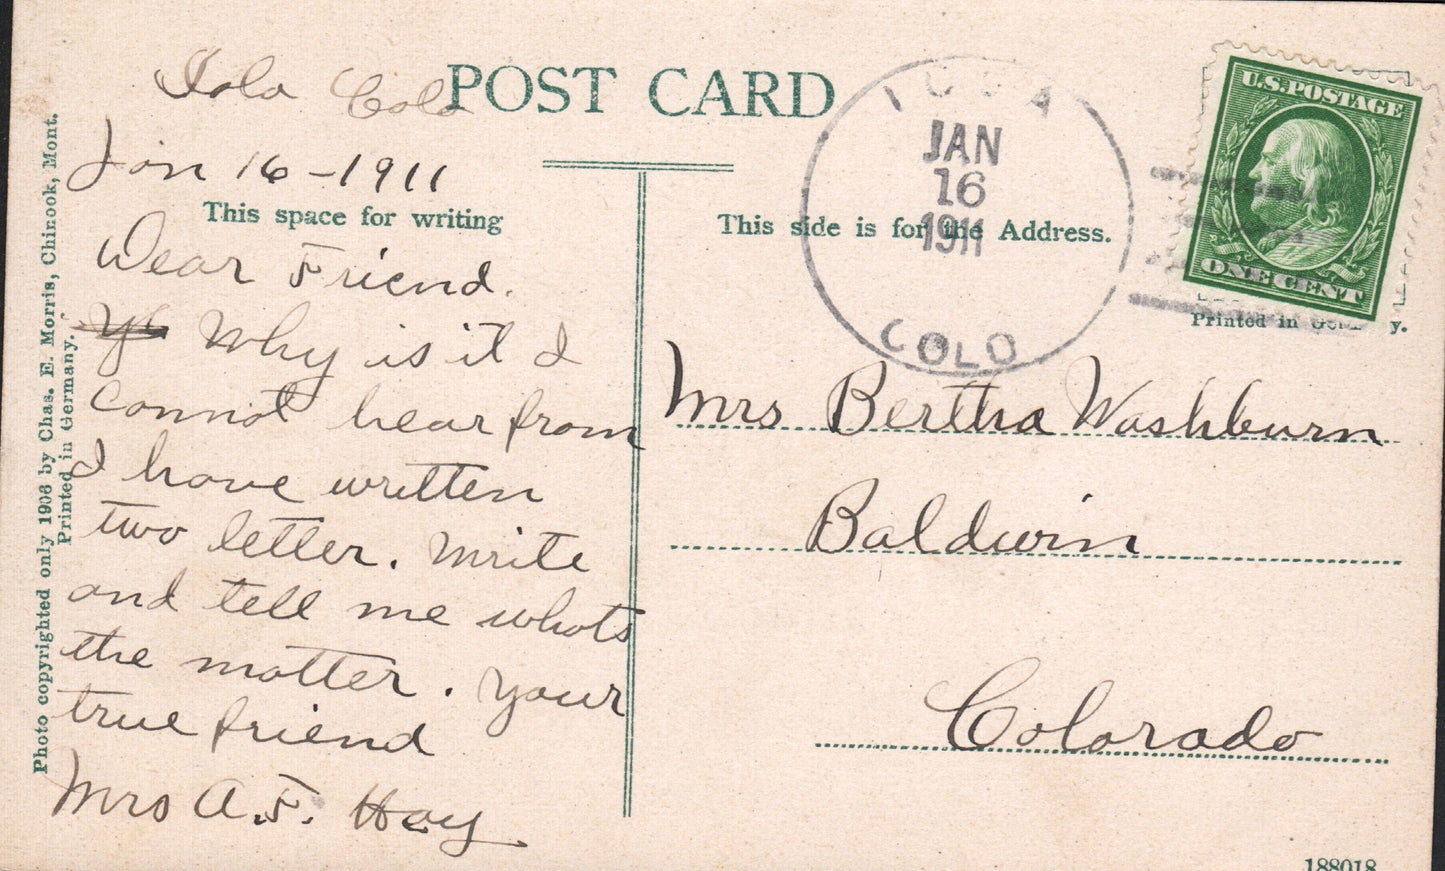 Iola Colo
POST CARD
Jan 16-1911
This space for writing
Dear Friend.
Why is it I
cannot hear from
I have written
two letter. Write
and tell me whats
the matter. Your
true friend
Mrs A.F. Hay
Photo copyrighted only 1908 by Chas. E. Morris, Chinook, Mont.
Printed in Germany.
COLO
JAN
16
1911
This side is for the Address.
U.S. POSTAGE
ONE CENT
Printed in Germany.
Mrs Bertha Washburn
Baldwin
Colorado
188018